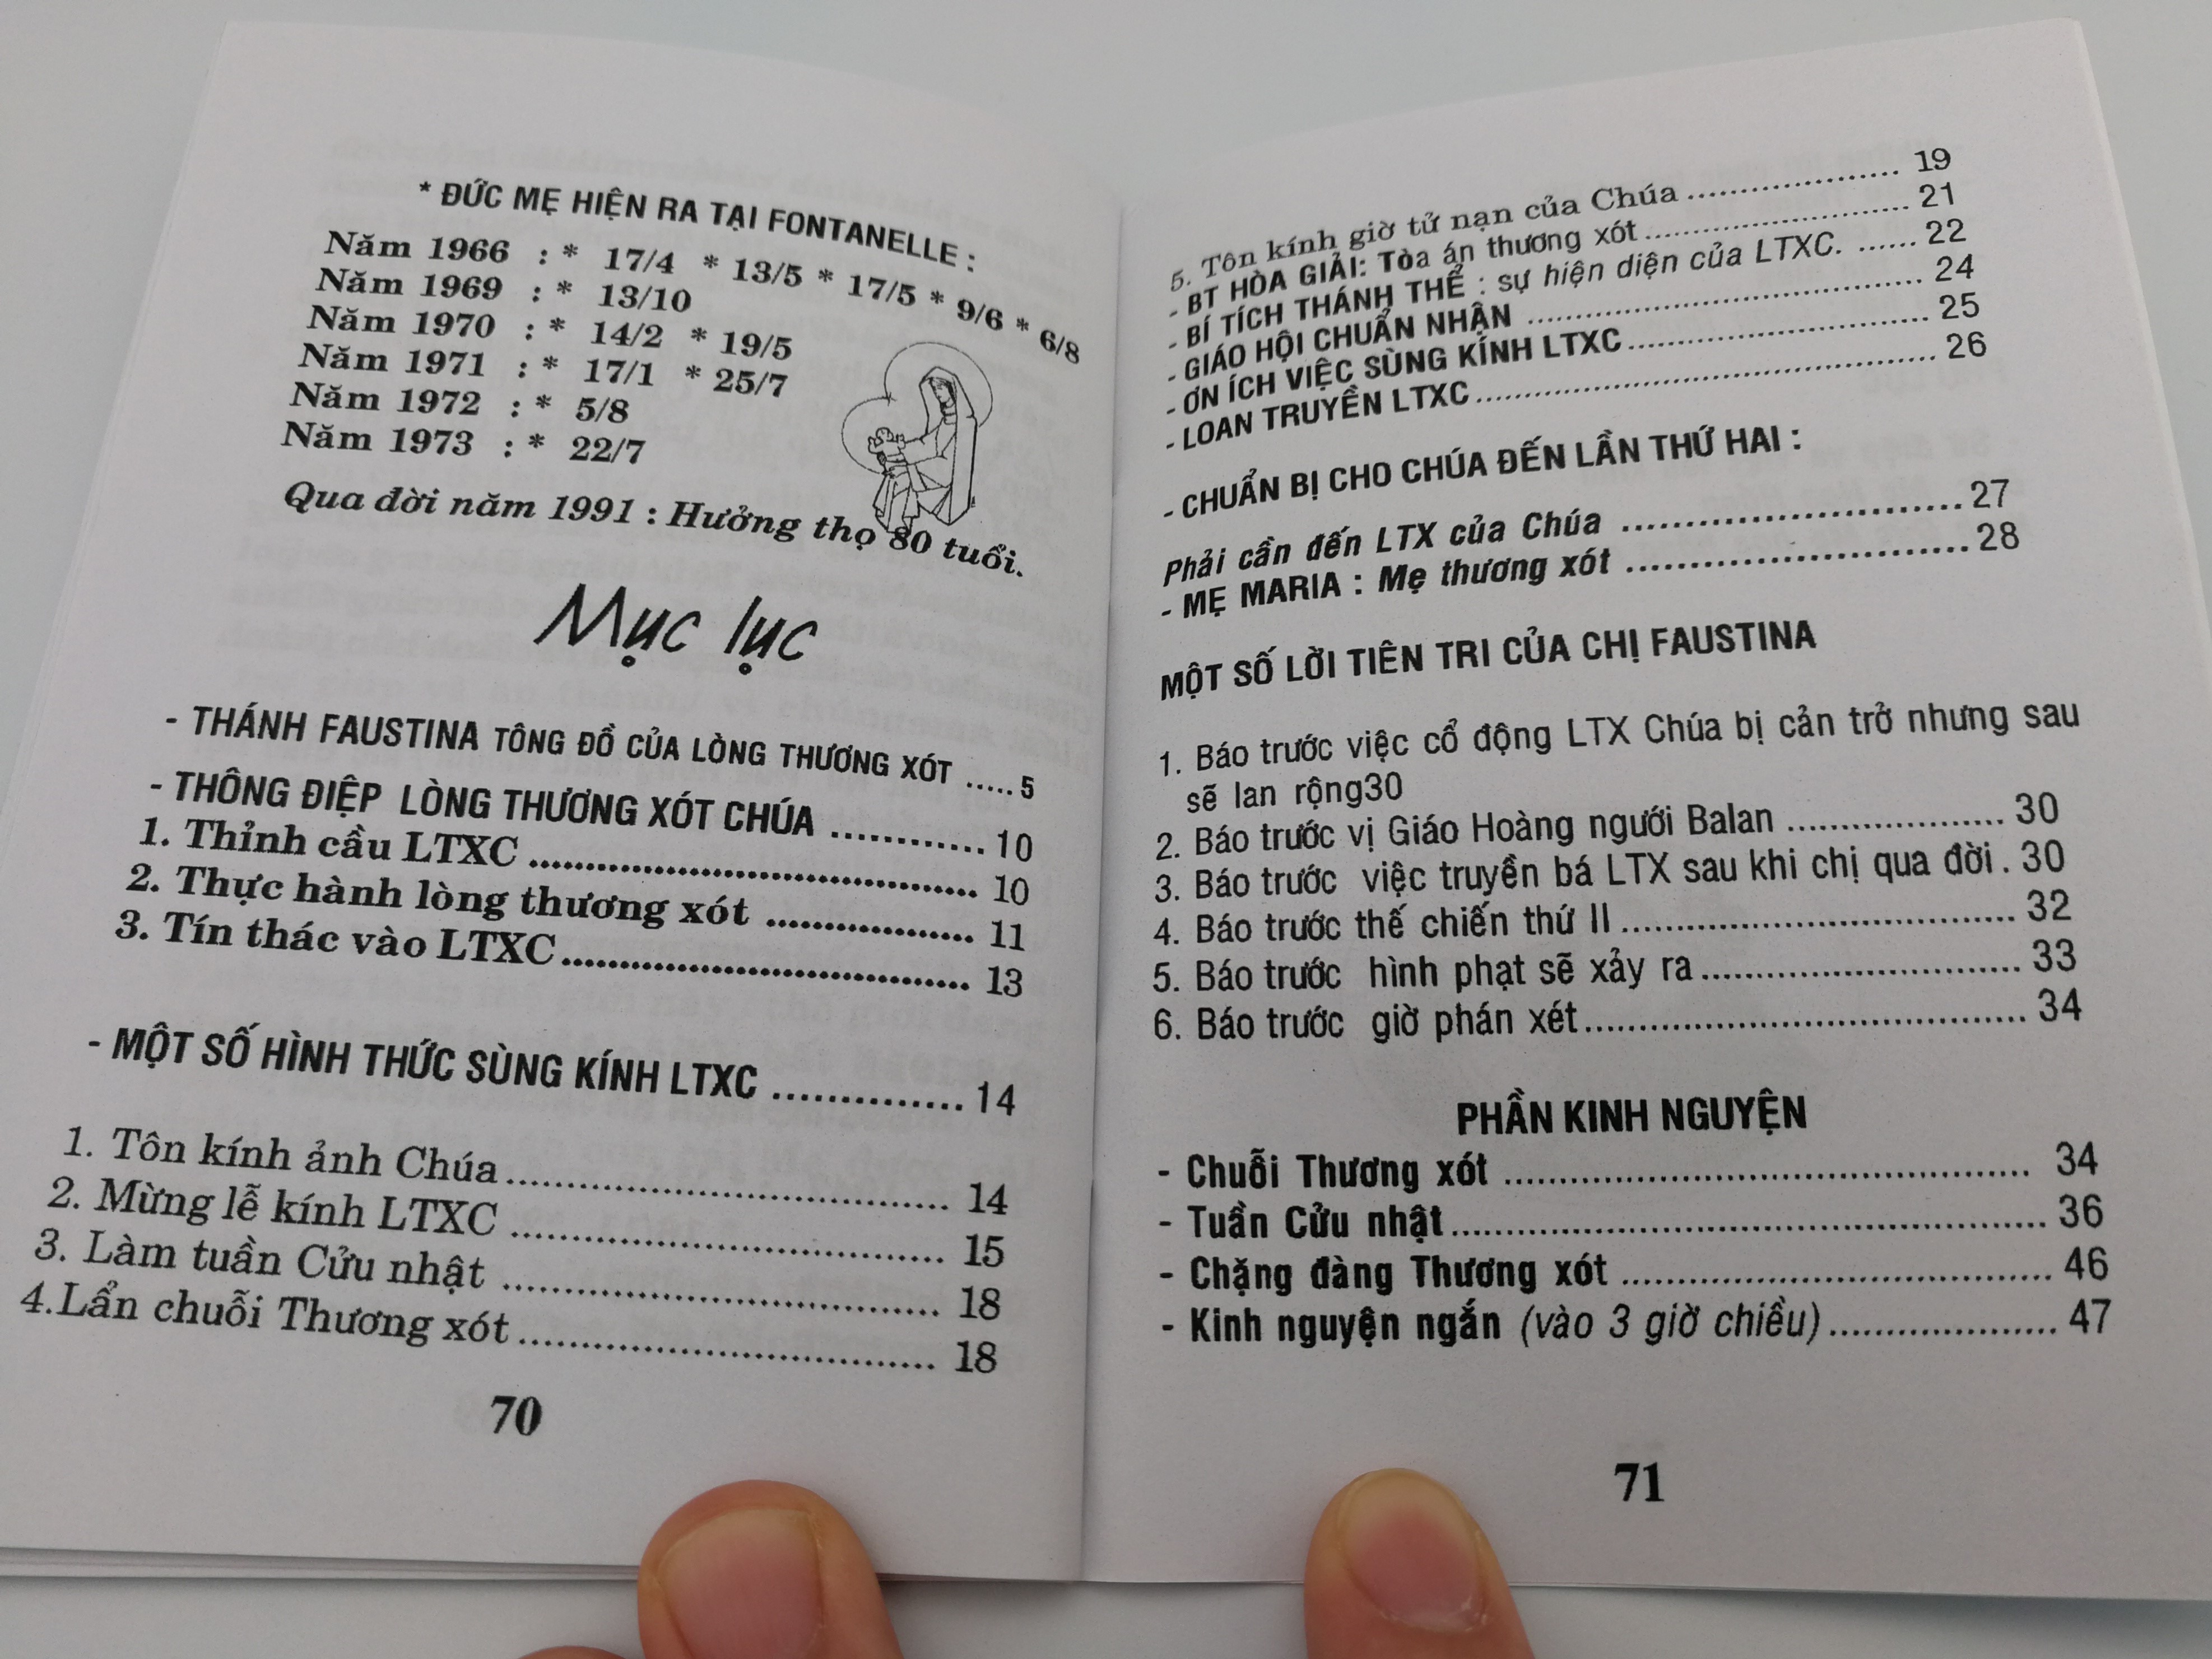 * ĐỨC MẸ HIỆN RA TẠI FONTANELLE :
Năm 1966 : * 17/4 * 13/5 * 17/5 * 9/6 * 6/8
Năm 1969 : * 13/10
Năm 1970 : * 14/2 * 19/5
Năm 1971 : * 17/1 * 25/7
Năm 1972 : * 5/8
Năm 1973 : * 22/7
Qua đời năm 1991 : Hưởng thọ 80 tuổi.
Mục lục
- THÁNH FAUSTINA TÔNG ĐỒ CỦA LÒNG THƯƠNG XÓT ..... 5
- THÔNG ĐIỆP LÒNG THƯƠNG XÓT CHÚA ............ 10
1. Thỉnh cầu LTXC ...................................... 10
2. Thực hành lòng thương xót .................. 11
3. Tín thác vào LTXC ................................... 13
- MỘT SỐ HÌNH THỨC SÙNG KÍNH LTXC .............. 14
1. Tôn kính ảnh Chúa ..................................... 14
2. Mừng lễ kính LTXC .................................... 15
3. Làm tuần Cửu nhật .................................... 18
4.Lẩn chuỗi Thương xót ................................... 18
70
5. Tôn kính giờ tử nạn của Chúa .................... 19
- BT HÒA GIẢI: Tòa án thương xót ......................... 21
- BÍ TÍCH THÁNH THỂ : sự hiện diện của LTXC. ...... 22
- GIÁO HỘI CHUẨN NHẬN ..................................... 24
- ƠN ÍCH VIỆC SÙNG KÍNH LTXC ............................ 25
- LOAN TRUYỀN LTXC ........................................... 26
- CHUẨN BỊ CHO CHÚA ĐẾN LẦN THỨ HAI :
Phải cần đến LTX của Chúa .......................... 27
- MẸ MARIA : Mẹ thương xót .......................... 28
MỘT SỐ LỜI TIÊN TRI CỦA CHỊ FAUSTINA
1. Báo trước việc cổ động LTX Chúa bị cản trở nhưng sau
sẽ lan rộng30
2. Báo trước vị Giáo Hoàng người Balan .................... 30
3. Báo trước việc truyền bá LTX sau khi chị qua đời . 30
4. Báo trước thế chiến thứ II .................................... 32
5. Báo trước hình phạt sẽ xảy ra ............................. 33
6. Báo trước giờ phán xét ........................................ 34
PHẦN KINH NGUYỆN
- Chuỗi Thương xót ............................................... 34
- Tuần Cửu nhật ..................................................... 36
- Chặng đàng Thương xót ...................................... 46
- Kinh nguyện ngắn (vào 3 giờ chiều) .................... 47
71